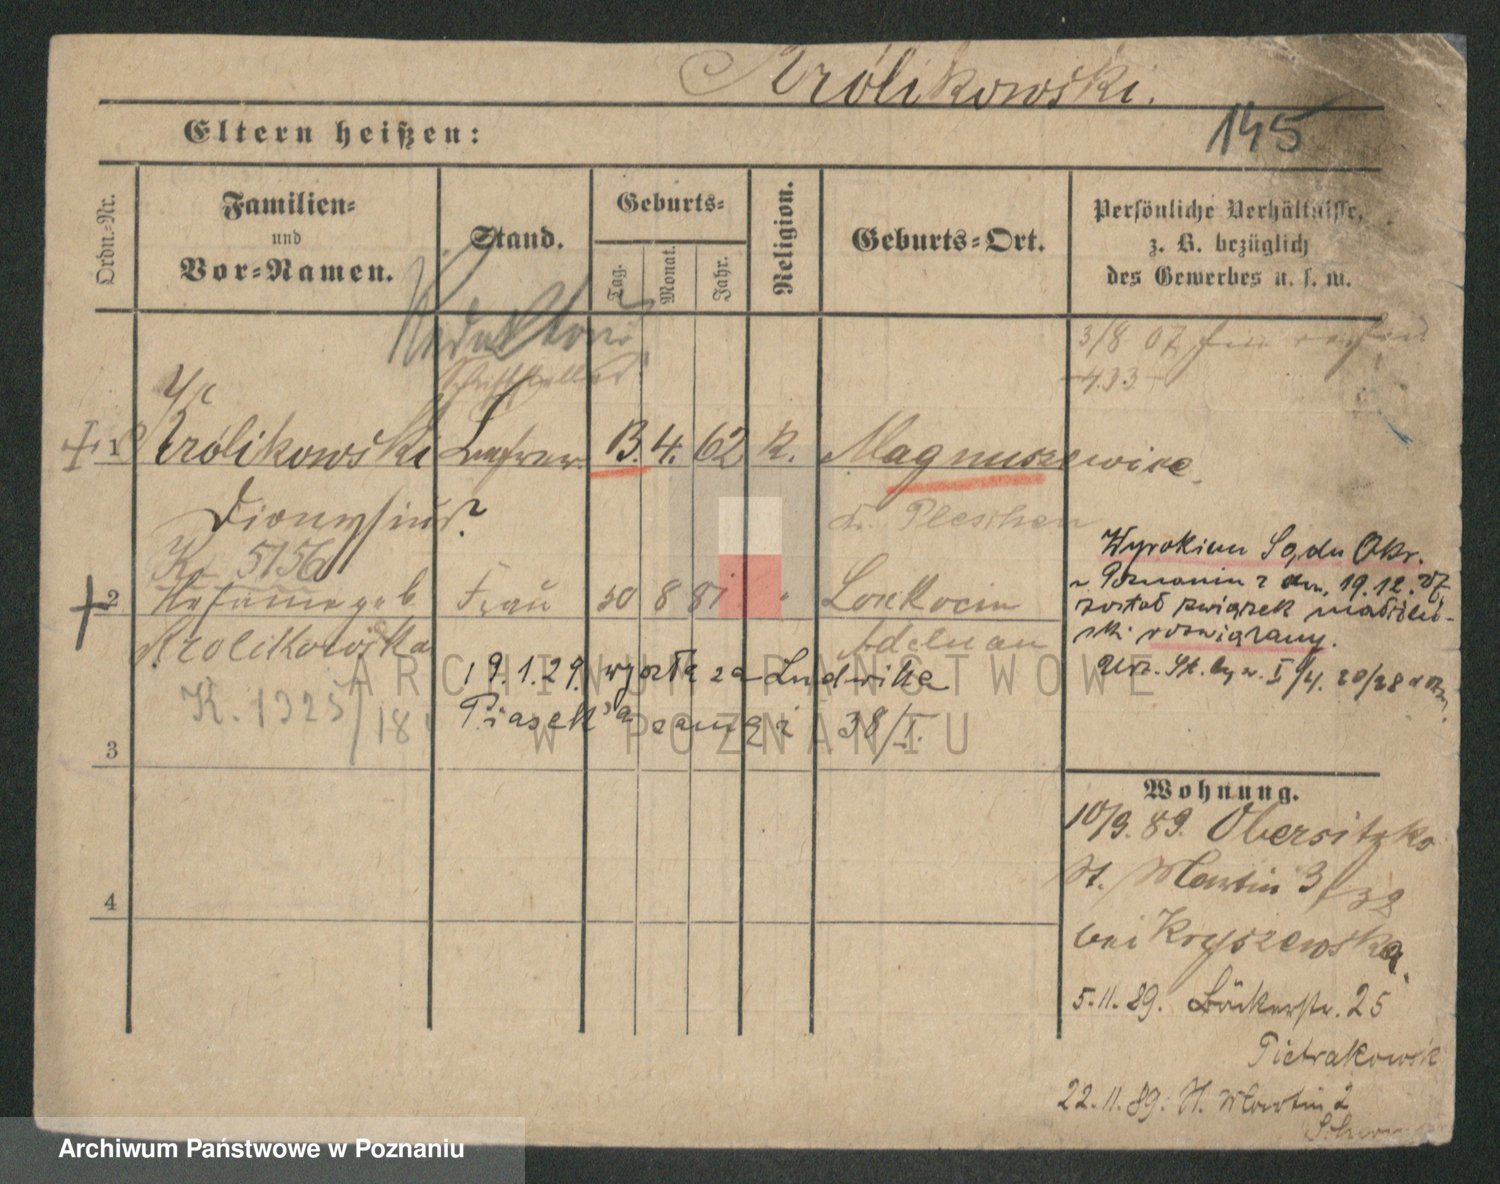 Królikowski.
145
Eltern heißen:
Ordn.-Nr.
Familien-
und
Vor-Namen.
Stand.
Geburts-
Tag.
Monat.
Jahr.
Religion.
Geburts-Ort.
Persönliche Verhältnisse,
z. B. bezüglich
des Gewerbes u. s. w.
3/8 07
433
Redakteur
Schriftsteller
1 Królikowski 13. 4. 62 k. Magnuszewice
Dionysius
Kr. Pleschen
K. 5156
2 geb Frau 30 8 81 "
Krolikowska
Adelnau
K. 1325/18
19.1.29. wyszła za Ludwika
Piasek 38/I.
Wyrokiem Sądu Okr.
w Poznaniu z dn. 19.12.27
został związek małżeń-
ski rozwiązany.
3
4
Wohnung.
10/9. 89. Obersitzko
St. Martin 3/39
bei Kryszewska
5.11.89. Bäckerstr. 25
Pietrakowsk
22.11.89. St. Martin 2
ARCHIWUM PAŃSTWOWE
W POZNANIU
Archiwum Państwowe w Poznaniu